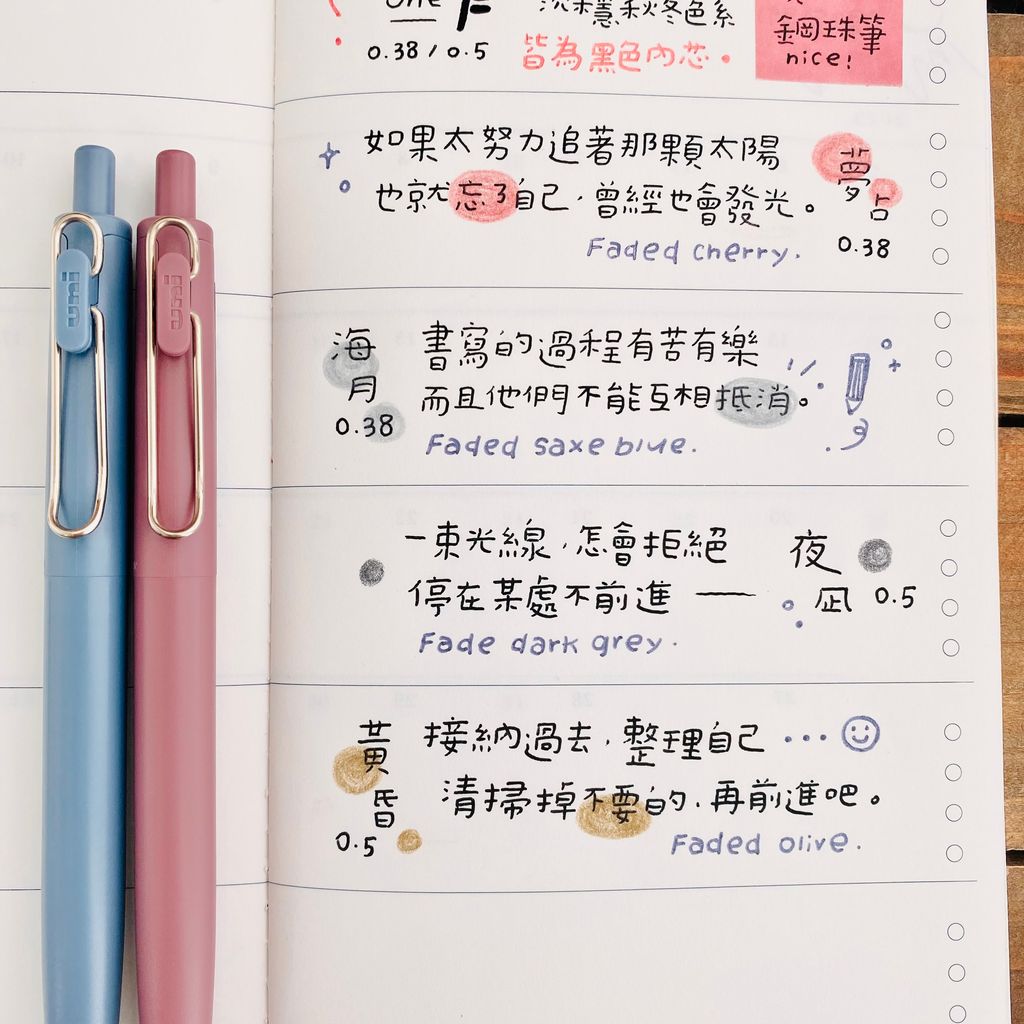 one F
沉穩秋冬色系
0.38 / 0.5
皆為黑色內芯。
鋼珠筆
nice!
如果太努力追著那顆太陽
也就忘了自己,曾經也會發光。
Faded cherry.
夢占
0.38
海月
0.38
書寫的過程有苦有樂
而且他們不能互相抵消。
Faded saxe blue.
一束光線,怎會拒絕
停在某處不前進 ——
Fade dark grey.
夜凪
0.5
黃昏
0.5
接納過去,整理自己...
清掃掉不要的,再前進吧。
Faded olive.
uni
uni